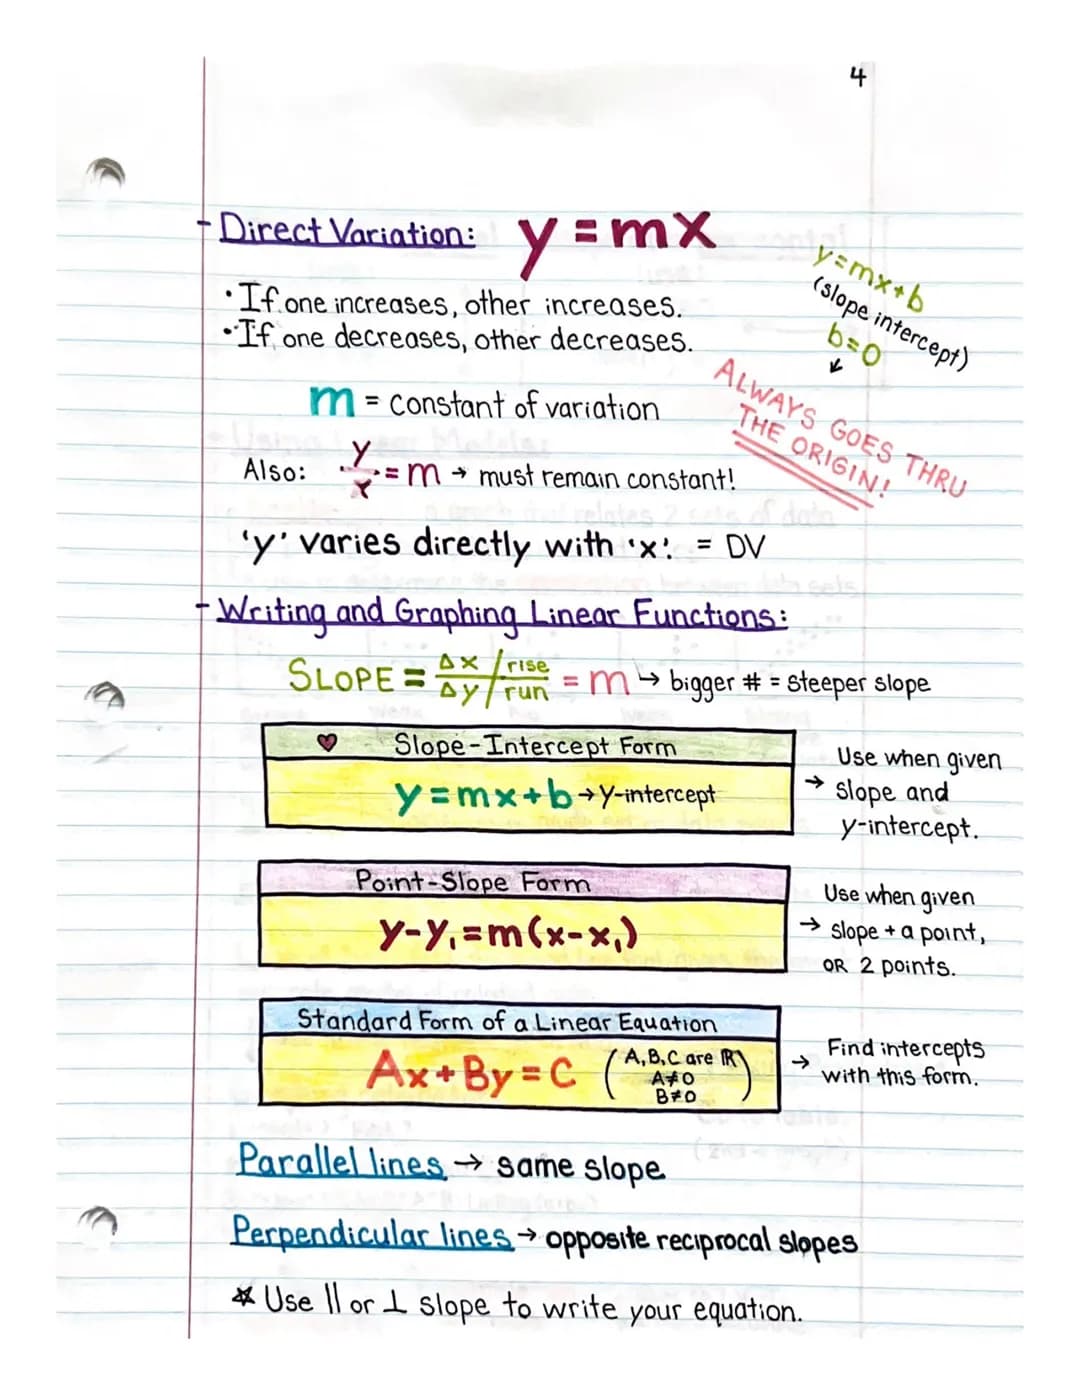 4
- Direct Variation: y=mx
• If one increases, other increases.
• If one decreases, other decreases.
y=mx+b
(slope intercept)
b=0
↙
ALWAYS GOES THRU
THE ORIGIN!
m = constant of variation
Also: y/x = m → must remain constant!
'y' varies directly with 'x'. = DV
- Writing and Graphing Linear Functions:
SLOPE = Δx/Δy / rise/run = m ↳ bigger # = steeper slope
♥ Slope-Intercept Form
y=mx+b → y-intercept
→ Use when given
slope and
y-intercept.
Point-Slope Form
y-y₁=m(x-x₁)
→ Use when given
slope + a point,
OR 2 points.
Standard Form of a Linear Equation
Ax+By=C (A,B,C are ℝ
A≠0
B≠0)
→ Find intercepts
with this form.
Parallel lines → same slope
Perpendicular lines → opposite reciprocal slopes
☆ Use || or ⊥ slope to write your equation.